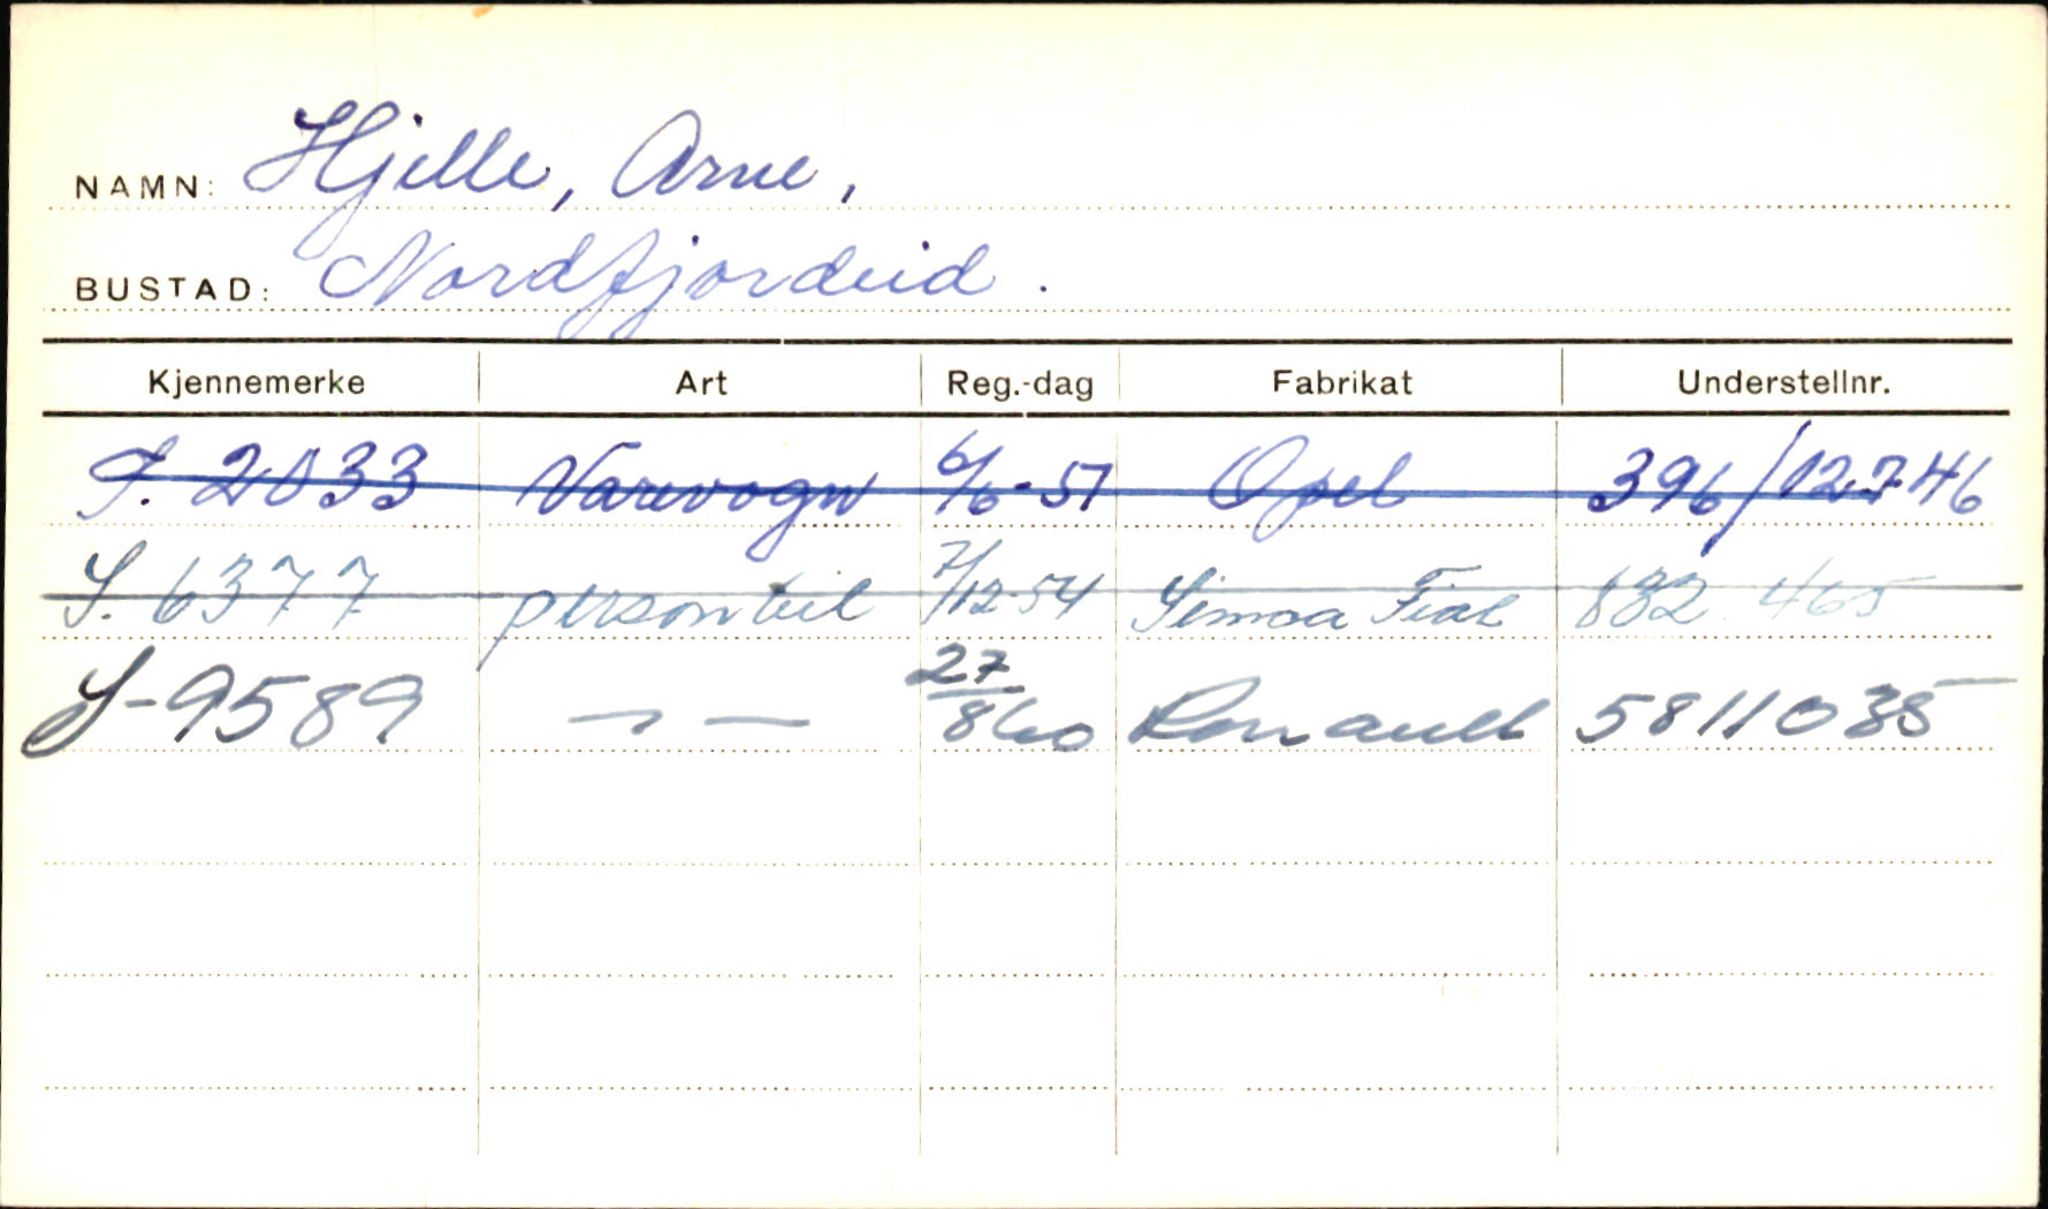 NAMN: Hjelle, Arne,
BUSTAD: Nordfjordeid.
Kjennemerke Art Reg.-dag Fabrikat Understellnr.
S. 2033 Varevogn 6/6-51 Opel 396/12746
S. 6377 personbil 7/12-54 Simca Fiat 832 465
S-9589 — " — 27/8 60 Renault 5811035